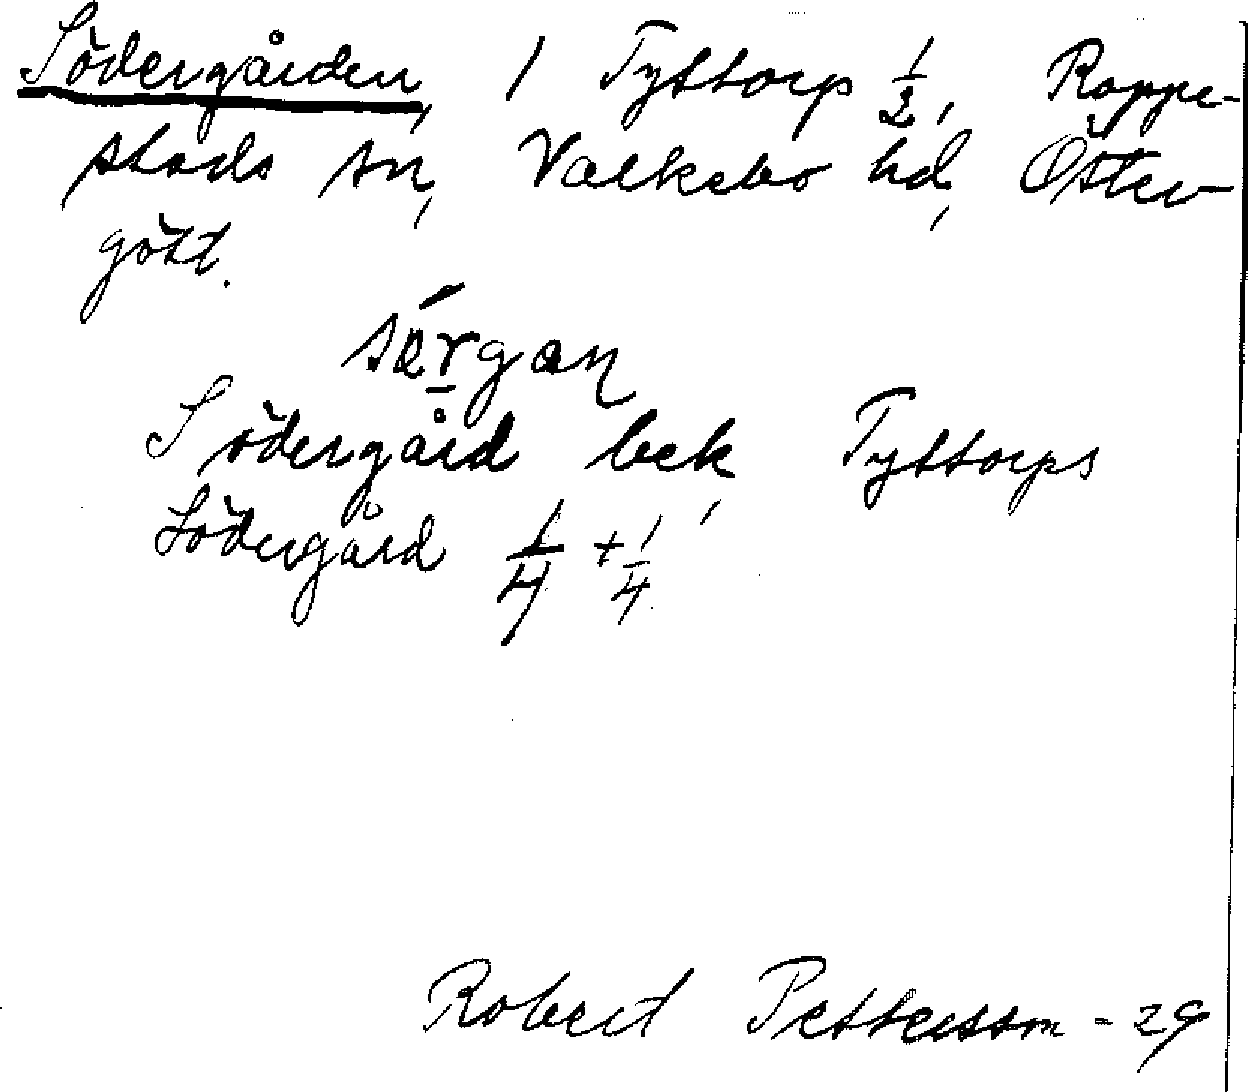 Södergården, 1 Tyttorp 1/2, Rappe-
stads sn, Valkebo hd, Öster-
götl.
sę́r̲gan
Södergård bek, Tyttorps
Södergård 1/4 + 1/4
Robert Pettersson - 29